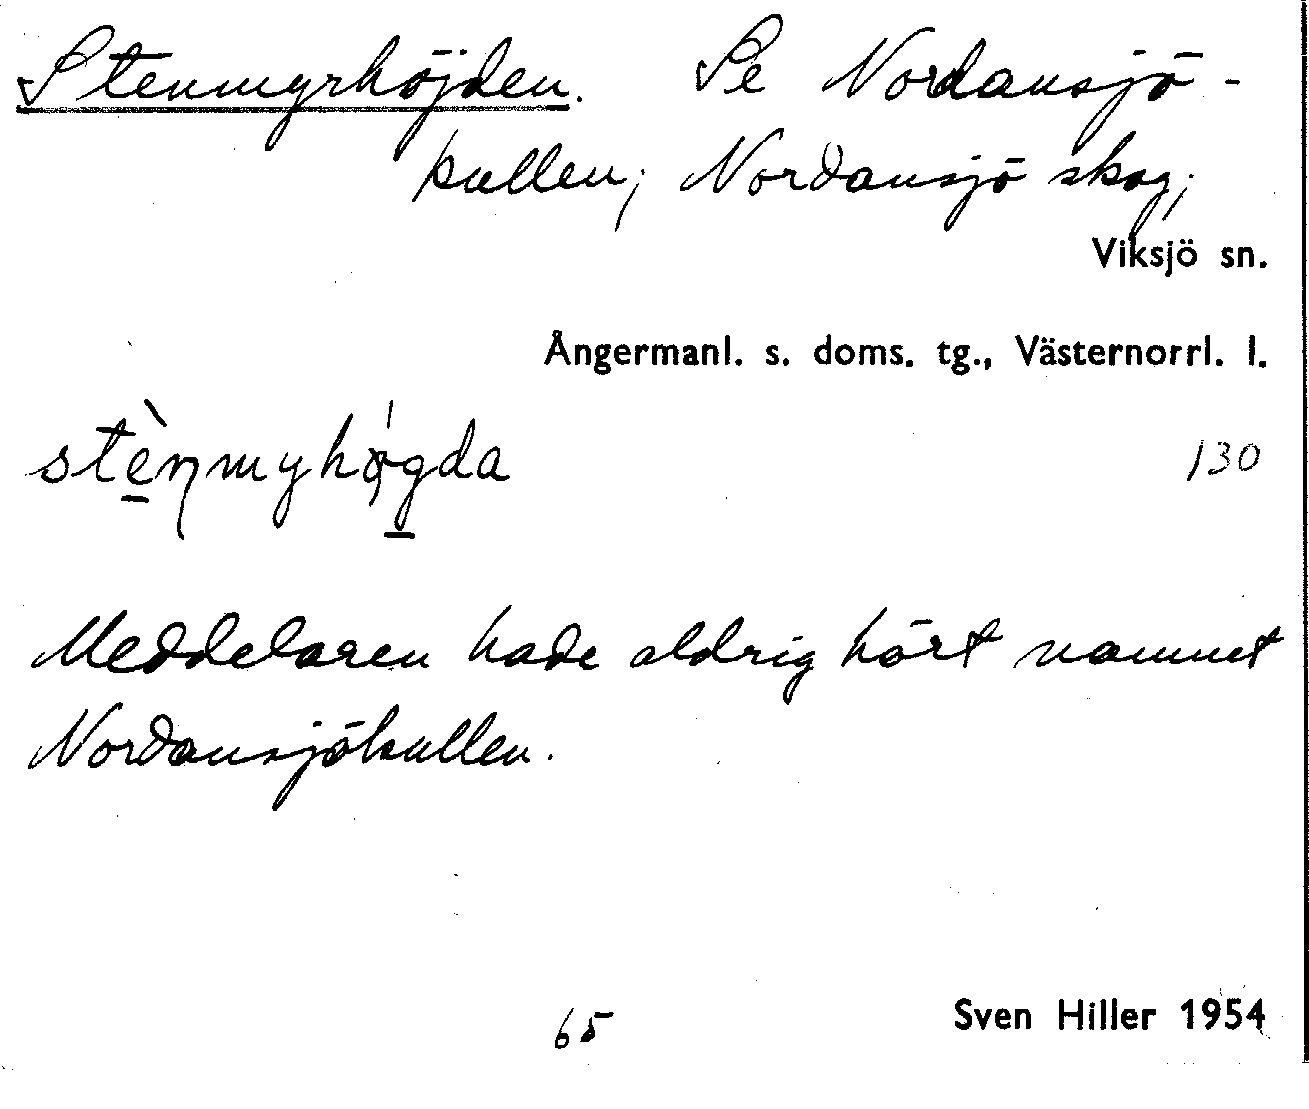 Stenmyrhöjden. Se Nordansjö-
kullen; Nordansjö skog;
Viksjö sn.
Ångermanl. s. doms. tg., Västernorrl. l.
stènmyhø̀gda
130
Meddelaren hade aldrig hört namnet
Nordansjökullen.
65
Sven Hiller 1954